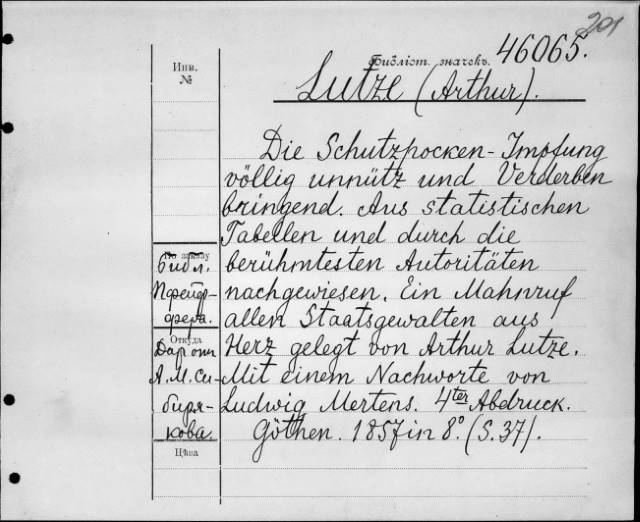 201
Библіот. значекъ. 46065.
Инв.
№
Lutze (Arthur).
Die Schutzpocken-Impfung
völlig unnütz und Verderben
bringend. Aus statistischen
Tabellen und durch die
По заказу
библ. berühmtesten Autoritäten
Пфейф- nachgewiesen. Ein Mahnruf
фера. allen Staatsgewalten ans
Откуда
Даръ отъ Herz gelegt von Arthur Lutze.
А. М. Си- Mit einem Nachworte von
биря- Ludwig Mertens. 4ter Abdruck.
кова. Göthen. 1857 in 8º. (S. 37).
Цѣна